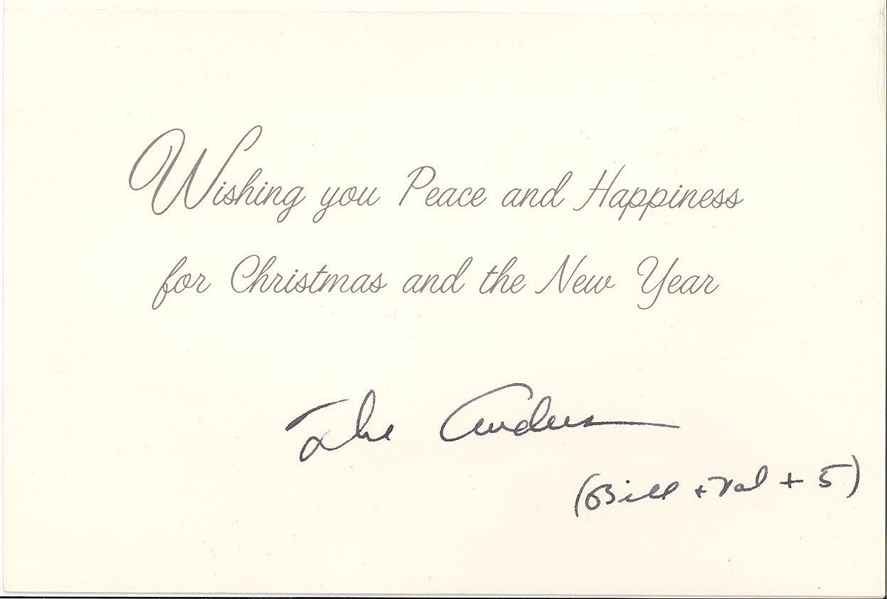 Wishing you Peace and Happiness
for Christmas and the New Year
The Anders
(Bill + Val + 5)